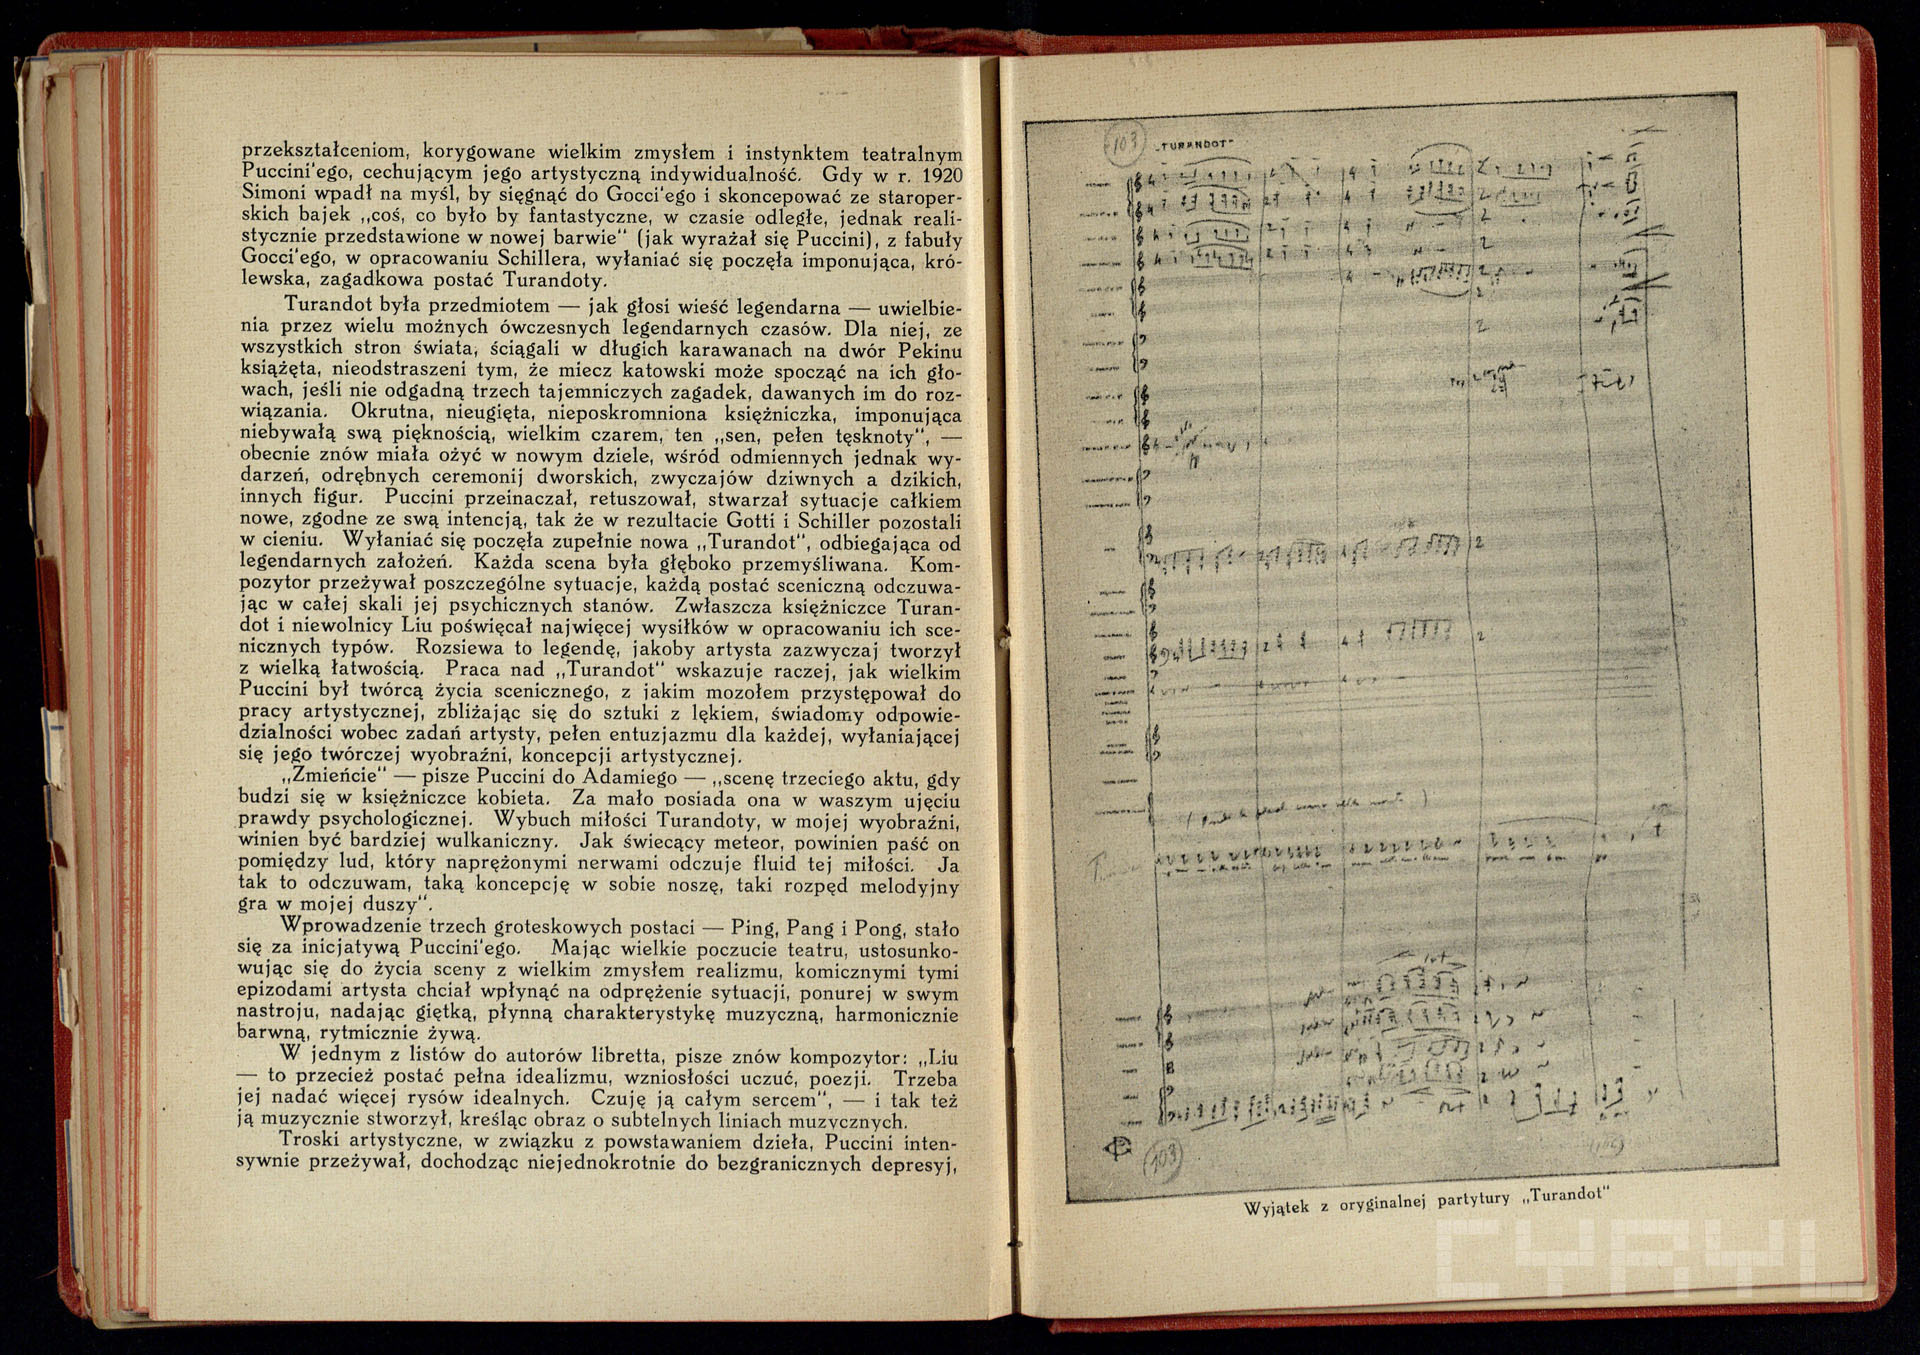 przekształceniom, korygowane wielkim zmysłem i instynktem teatralnym
Puccini'ego, cechującym jego artystyczną indywidualność. Gdy w r. 1920
Simoni wpadł na myśl, by sięgnąć do Gocci'ego i skoncepować ze staroper-
skich bajek „coś, co było by fantastyczne, w czasie odległe, jednak reali-
stycznie przedstawione w nowej barwie“ (jak wyrażał się Puccini), z fabuły
Gocci'ego, w opracowaniu Schillera, wyłaniać się poczęła imponująca, kró-
lewska, zagadkowa postać Turandoty.
Turandot była przedmiotem — jak głosi wieść legendarna — uwielbie-
nia przez wielu możnych ówczesnych legendarnych czasów. Dla niej, ze
wszystkich stron świata, ściągali w długich karawanach na dwór Pekinu
książęta, nieodstraszeni tym, że miecz katowski może spocząć na ich gło-
wach, jeśli nie odgadną trzech tajemniczych zagadek, dawanych im do roz-
wiązania. Okrutna, nieugięta, nieposkromniona księżniczka, imponująca
niebywałą swą pięknością, wielkim czarem, ten „sen, pełen tęsknoty“, —
obecnie znów miała ożyć w nowym dziele, wśród odmiennych jednak wy-
darzeń, odrębnych ceremonij dworskich, zwyczajów dziwnych a dzikich,
innych figur. Puccini przeinaczał, retuszował, stwarzał sytuacje całkiem
nowe, zgodne ze swą intencją, tak że w rezultacie Gotti i Schiller pozostali
w cieniu. Wyłaniać się poczęła zupełnie nowa „Turandot“, odbiegająca od
legendarnych założeń. Każda scena była głęboko przemyśliwana. Kom-
pozytor przeżywał poszczególne sytuacje, każdą postać sceniczną odczuwa-
jąc w całej skali jej psychicznych stanów. Zwłaszcza księżniczce Turan-
dot i niewolnicy Liu poświęcał najwięcej wysiłków w opracowaniu ich sce-
nicznych typów. Rozsiewa to legendę, jakoby artysta zazwyczaj tworzył
z wielką łatwością. Praca nad „Turandot“ wskazuje raczej, jak wielkim
Puccini był twórcą życia scenicznego, z jakim mozołem przystępował do
pracy artystycznej, zbliżając się do sztuki z lękiem, świadomy odpowie-
dzialności wobec zadań artysty, pełen entuzjazmu dla każdej, wyłaniającej
się jego twórczej wyobraźni, koncepcji artystycznej.
„Zmieńcie“ — pisze Puccini do Adamiego — „scenę trzeciego aktu, gdy
budzi się w księżniczce kobieta. Za mało posiada ona w waszym ujęciu
prawdy psychologicznej. Wybuch miłości Turandoty, w mojej wyobraźni,
winien być bardziej wulkaniczny. Jak świecący meteor, powinien paść on
pomiędzy lud, który naprężonymi nerwami odczuje fluid tej miłości. Ja
tak to odczuwam, taką koncepcję w sobie noszę, taki rozpęd melodyjny
gra w mojej duszy“.
Wprowadzenie trzech groteskowych postaci — Ping, Pang i Pong, stało
się za inicjatywą Puccini'ego. Mając wielkie poczucie teatru, ustosunko-
wując się do życia sceny z wielkim zmysłem realizmu, komicznymi tymi
epizodami artysta chciał wpłynąć na odprężenie sytuacji, ponurej w swym
nastroju, nadając giętką, płynną charakterystykę muzyczną, harmonicznie
barwną, rytmicznie żywą.
W jednym z listów do autorów libretta, pisze znów kompozytor: „Liu
— to przecież postać pełna idealizmu, wzniosłości uczuć, poezji. Trzeba
jej nadać więcej rysów idealnych. Czuję ją całym sercem“, — i tak też
ją muzycznie stworzył, kreśląc obraz o subtelnych liniach muzycznych.
Troski artystyczne, w związku z powstawaniem dzieła, Puccini inten-
sywnie przeżywał, dochodząc niejednokrotnie do bezgranicznych depresyj,
103
„TURANDOT“
103
Wyjątek z oryginalnej partytury „Turandot“
CYRYL